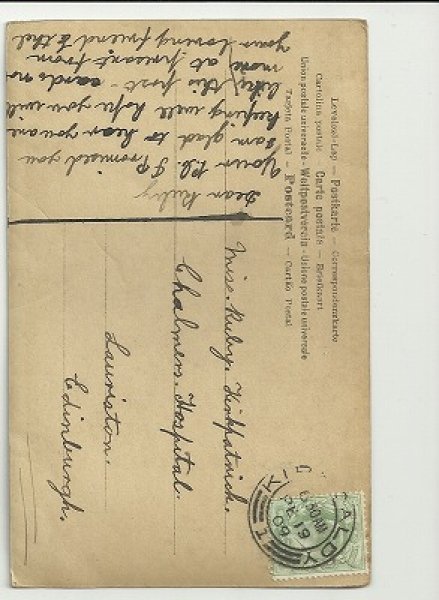 Levelező-Lap — Postkarte — Correspondenzkarte
Cartolina postale — Carte postale — Briefkaart
Union postale universelle - Weltpostverein - Unione postale universale
Tarjeta Postal — Postcard — Cartão Postal
Dear Ruby
your P.C. I Promised you
am glad to hear you are
keeping well hope you will
like this post - cards no
more at present from
your loving friend E thel
Miss. Ruby. Kirkpatrick.
Chalmers. Hospital.
Lauriston.
Edinburgh.
KIRKCALDY